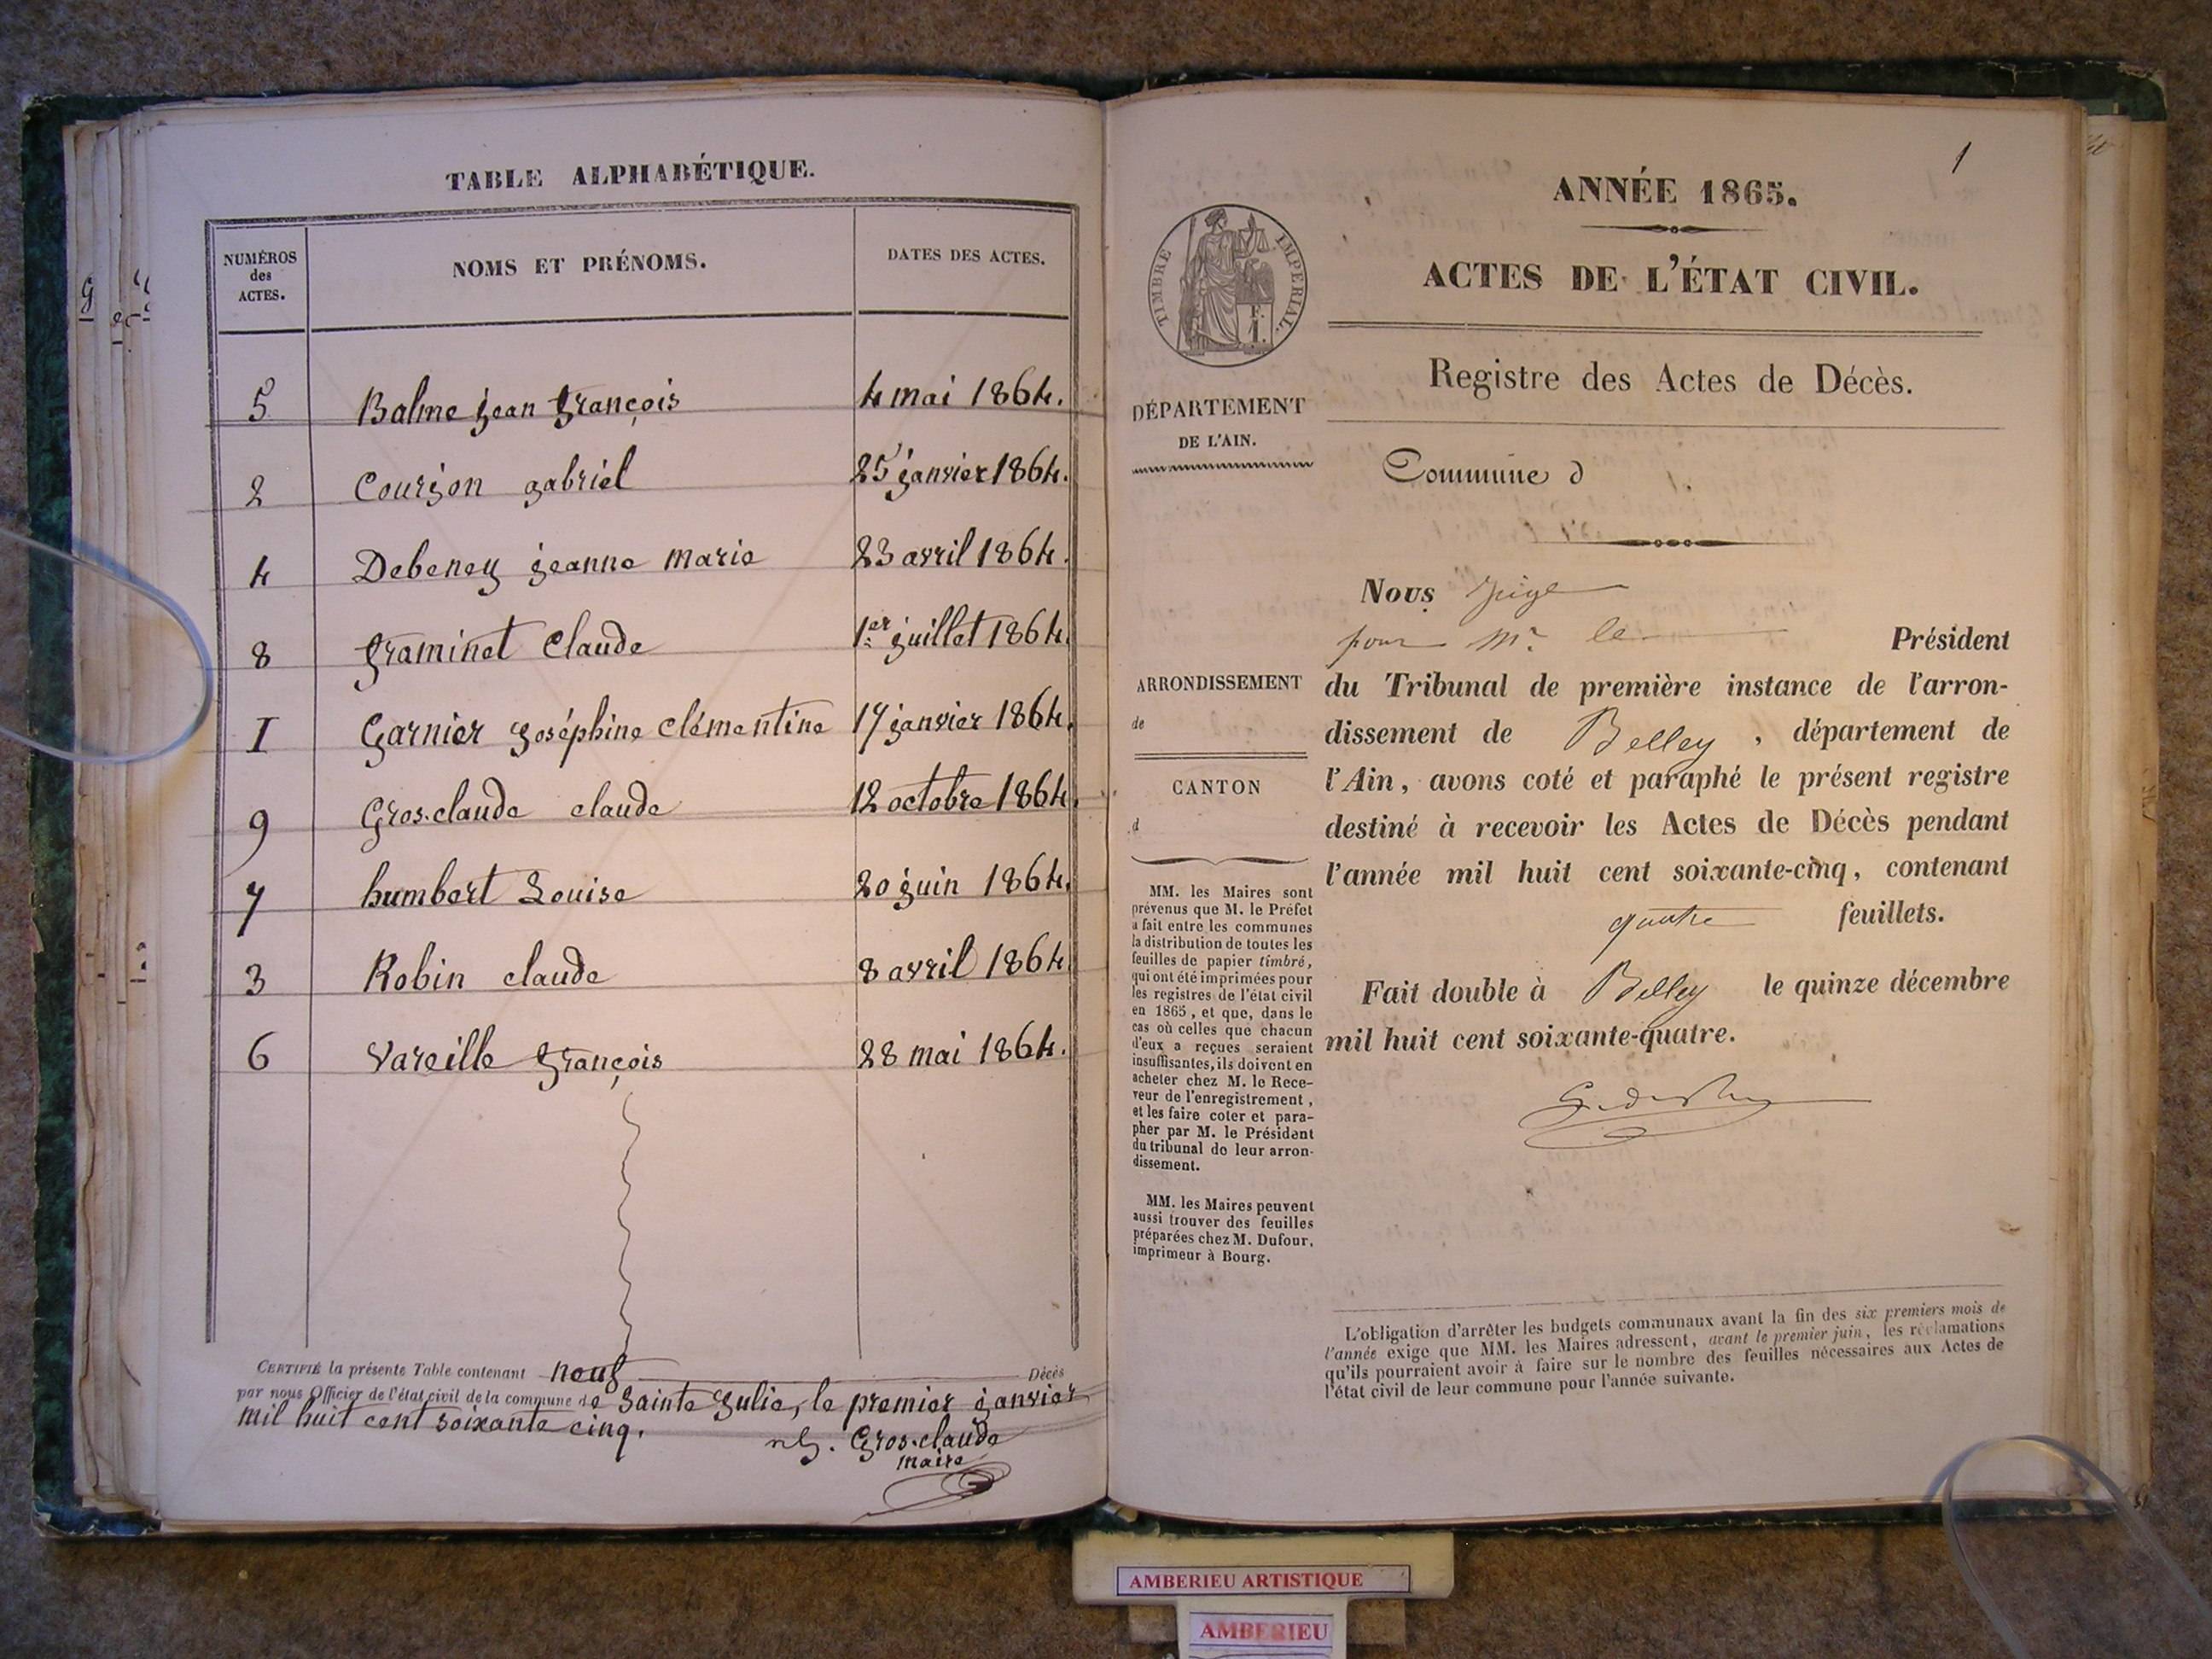 TABLE ALPHABÉTIQUE.
NUMÉROS
des
ACTES.
NOMS ET PRÉNOMS.
DATES DES ACTES.
5 Balme jean françois 4 mai 1864.
2 Courjon gabriel 25 janvier 1864.
4 Debeney jeanne marie 23 avril 1864.
8 framinet Claude 1er juillet 1864.
I Garnier joséphine Clémentine 17 janvier 1864.
9 Gros-claude claude 12 octobre 1864.
7 humbert Louise 20 juin 1864.
3 Robin claude 8 avril 1864
6 Vareille françois 28 mai 1864.
CERTIFIÉ la présente Table contenant neuf Décès
par nous Officier de l'état civil de la commune de Sainte Julie, le premier janvier
mil huit cent soixante cinq.
Gros-claude
maire
1
ANNÉE 1865.
ACTES DE L'ÉTAT CIVIL.
TIMBRE IMPERIAL.
F.
1.
Registre des Actes de Décès.
DÉPARTEMENT
DE L'AIN.
Commune d
Nous juge
pour Mr. le Président
ARRONDISSEMENT
de
CANTON
d
du Tribunal de première instance de l'arron-
dissement de Belley, département de
l'Ain, avons coté et paraphé le présent registre
destiné à recevoir les Actes de Décès pendant
l'année mil huit cent soixante-cinq, contenant
quatre feuillets.
Fait double à Belley le quinze décembre
mil huit cent soixante-quatre.
MM. les Maires sont
prévenus que M. le Préfet
a fait entre les communes
la distribution de toutes les
feuilles de papier timbré,
qui ont été imprimées pour
les registres de l'état civil
en 1865, et que, dans le
cas où celles que chacun
d'eux a reçues seraient
insuffisantes, ils doivent en
acheter chez M. le Rece-
veur de l'enregistrement,
et les faire coter et para-
pher par M. le Président
du tribunal de leur arron-
dissement.
MM. les Maires peuvent
aussi trouver des feuilles
préparées chez M. Dufour,
imprimeur à Bourg.
L'obligation d'arrêter les budgets communaux avant la fin des six premiers mois de
l'année exige que MM. les Maires adressent, avant le premier juin, les réclamations
qu'ils pourraient avoir à faire sur le nombre des feuilles nécessaires aux Actes de
l'état civil de leur commune pour l'année suivante.
AMBERIEU ARTISTIQUE
AMBERIEU